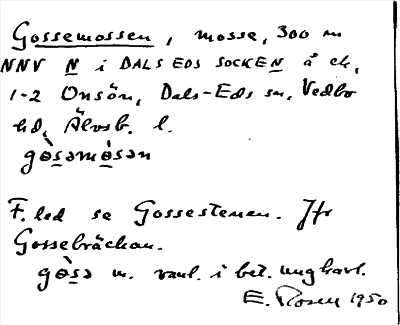 Gossemossen, mosse, 300 m
NNV N i DALS EDS SOCKEN å ek.
1-2 Onsön, Dals-Eds sn, Vedbo
hd, Älvsb. l.
gòsəmòsən
F. led se Gossestenen. Jfr
Gossebräckan.
gòsə m. vanl. i bet. ung karl.
E. Rosen 1950